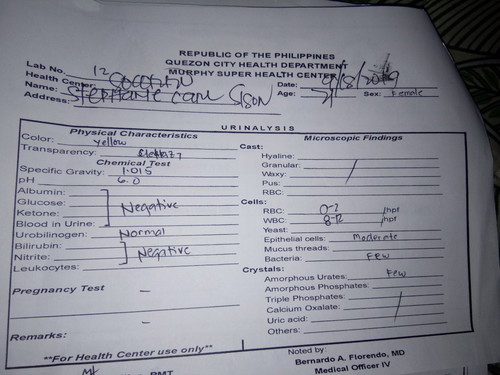 REPUBLIC OF THE PHILIPPINES
QUEZON CITY HEALTH DEPARTMENT
MURPHY SUPER HEALTH CENTER
Lab No. 12
Health Center:
Name: Stephanie Sison
Address:
Date:
Age:
Sex: Female
URINALYSIS
Physical Characteristics
Color: yellow
Transparency:
Chemical Test
Specific Gravity: 1.015
pH 6.0
Albumin:
Glucose:
Ketone:
Blood in Urine:
Negative
Urobilinogen: Normal
Bilirubin:
Nitrite:
Negative
Leukocytes:
Pregnancy Test –
–
Remarks:
**For Health Center use only**
Microscopic Findings
Cast:
Hyaline:
Granular:
Waxy:
Pus:
RBC:
Cells:
RBC: 0-2 /hpf
WBC: 8-12 /hpf
Yeast:
Epithelial cells: Moderate
Mucus threads:
Bacteria: Few
Crystals:
Amorphous Urates: Few
Amorphous Phosphates:
Triple Phosphates:
Calcium Oxalate:
Uric acid:
Others:
Noted by:
Bernardo A. Florendo, MD
Medical Officer IV
RMT